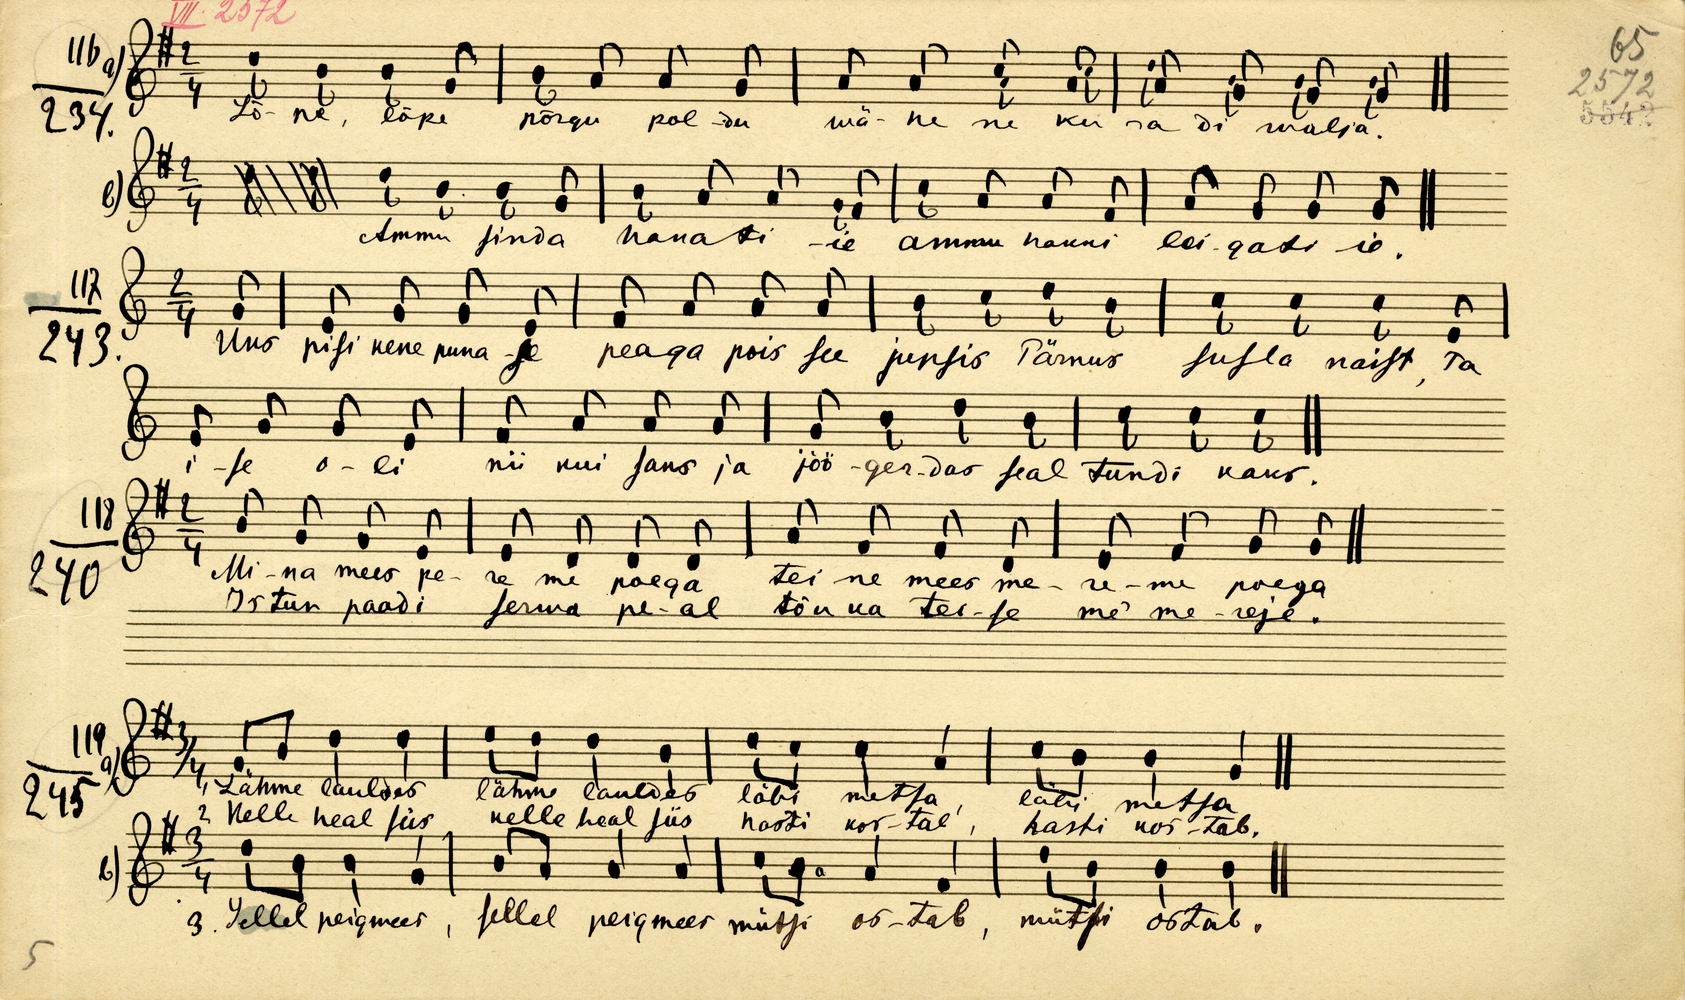 VII. 2572
65
2572
5542
116 a)
234.
Lõ- ne, lõke põrgu pol-du wä- ne ne ku ra di walja.
b)
Ammu sinda hanati -ie ammu hanni lei-gati -ie.
117
243.
Uks pisikene puna-se peaga pois see jupsis Pärnus susla naist, Ta
i-se o-li nii kui saks ja jöö-ger-das seal tundi kaks.
118
240
Mi-na mees pe- re me poega tei ne mees me- re-me poega
Istun paadi serwa pe-al tõuka tei-se me' me-reje.
119 a)
245
1, Lähme lauldes lähme lauldes läbi metsa, läbi metsa
2 Kelle heal siis kelle heal siis hasti kos-tab', hasti kos-tab.
b)
3. Sellel peigmees, sellel peigmees mütsi os-tab, mütsi ostab.
5